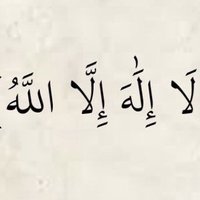 لَا إِلَٰهَ إِلَّا اللَّهُ